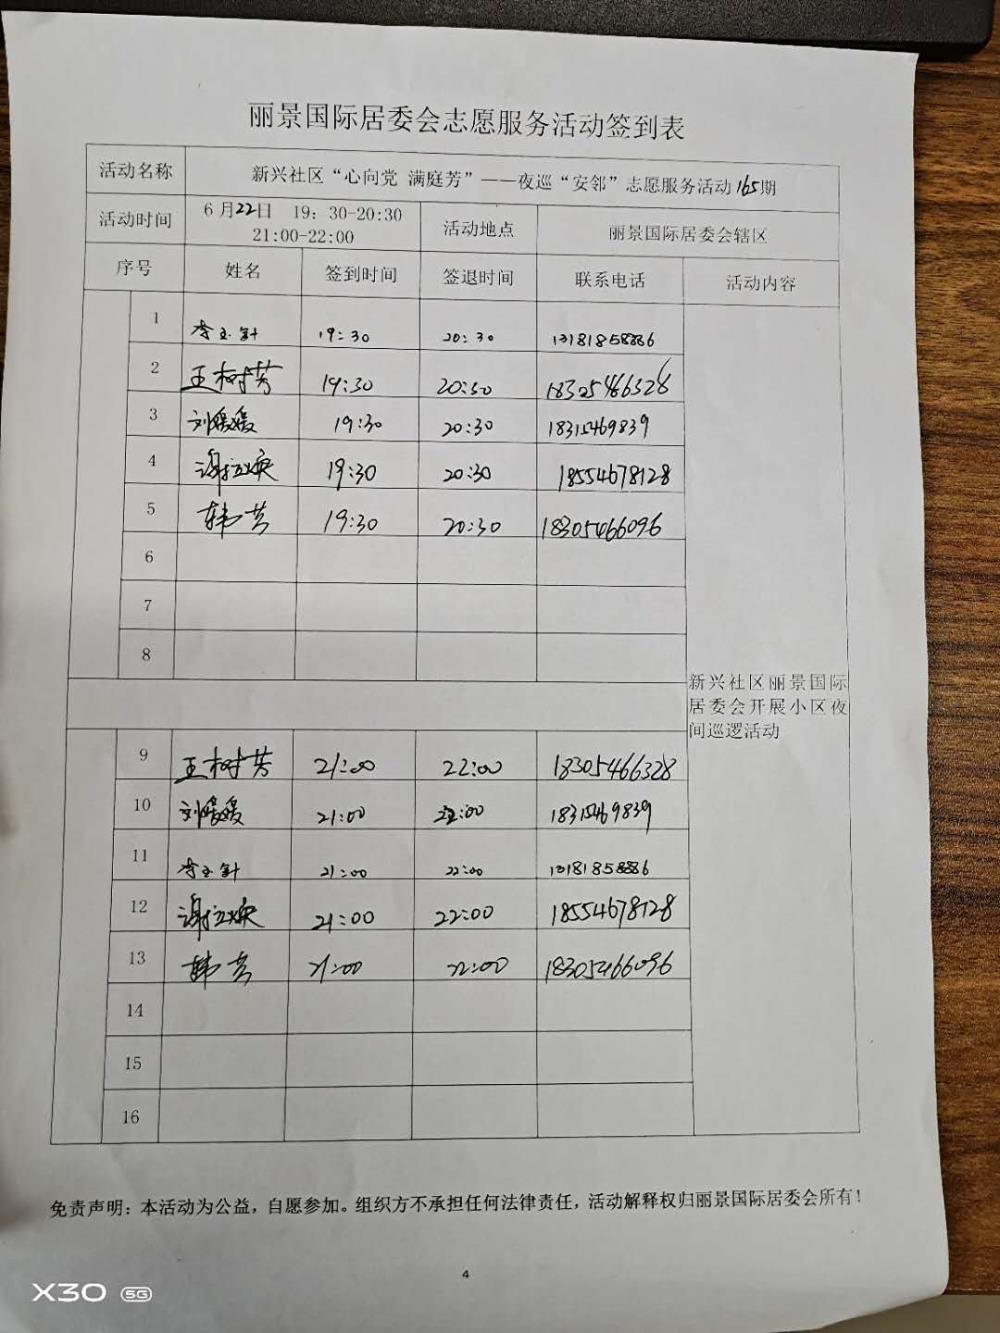 丽景国际居委会志愿服务活动签到表
活动名称 新兴社区“心向党 满庭芳”——夜巡“安邻”志愿服务活动165期
活动时间 6月22日 19：30-20:30 21:00-22:00 活动地点 丽景国际居委会辖区
序号 姓名 签到时间 签退时间 联系电话 活动内容
1 李玉针 19:30 20:30 13181858886
2 王树芳 19:30 20:30 18305466328
3 刘媛媛 19:30 20:30 18315469839
4 谢 19:30 20:30 18554678128
5 韩芳 19:30 20:30 18305466096
6
7
8
新兴社区丽景国际
居委会开展小区夜
间巡逻活动
9 王树芳 21:00 22:00 18305466328
10 刘媛媛 21:00 22:00 18315469839
11 李玉针 21:00 22:00 13181858886
12 谢 21:00 22:00 18554678128
13 韩芳 21:00 22:00 18305466096
14
15
16
免责声明：本活动为公益，自愿参加。组织方不承担任何法律责任，活动解释权归丽景国际居委会所有！
4
X30 5G